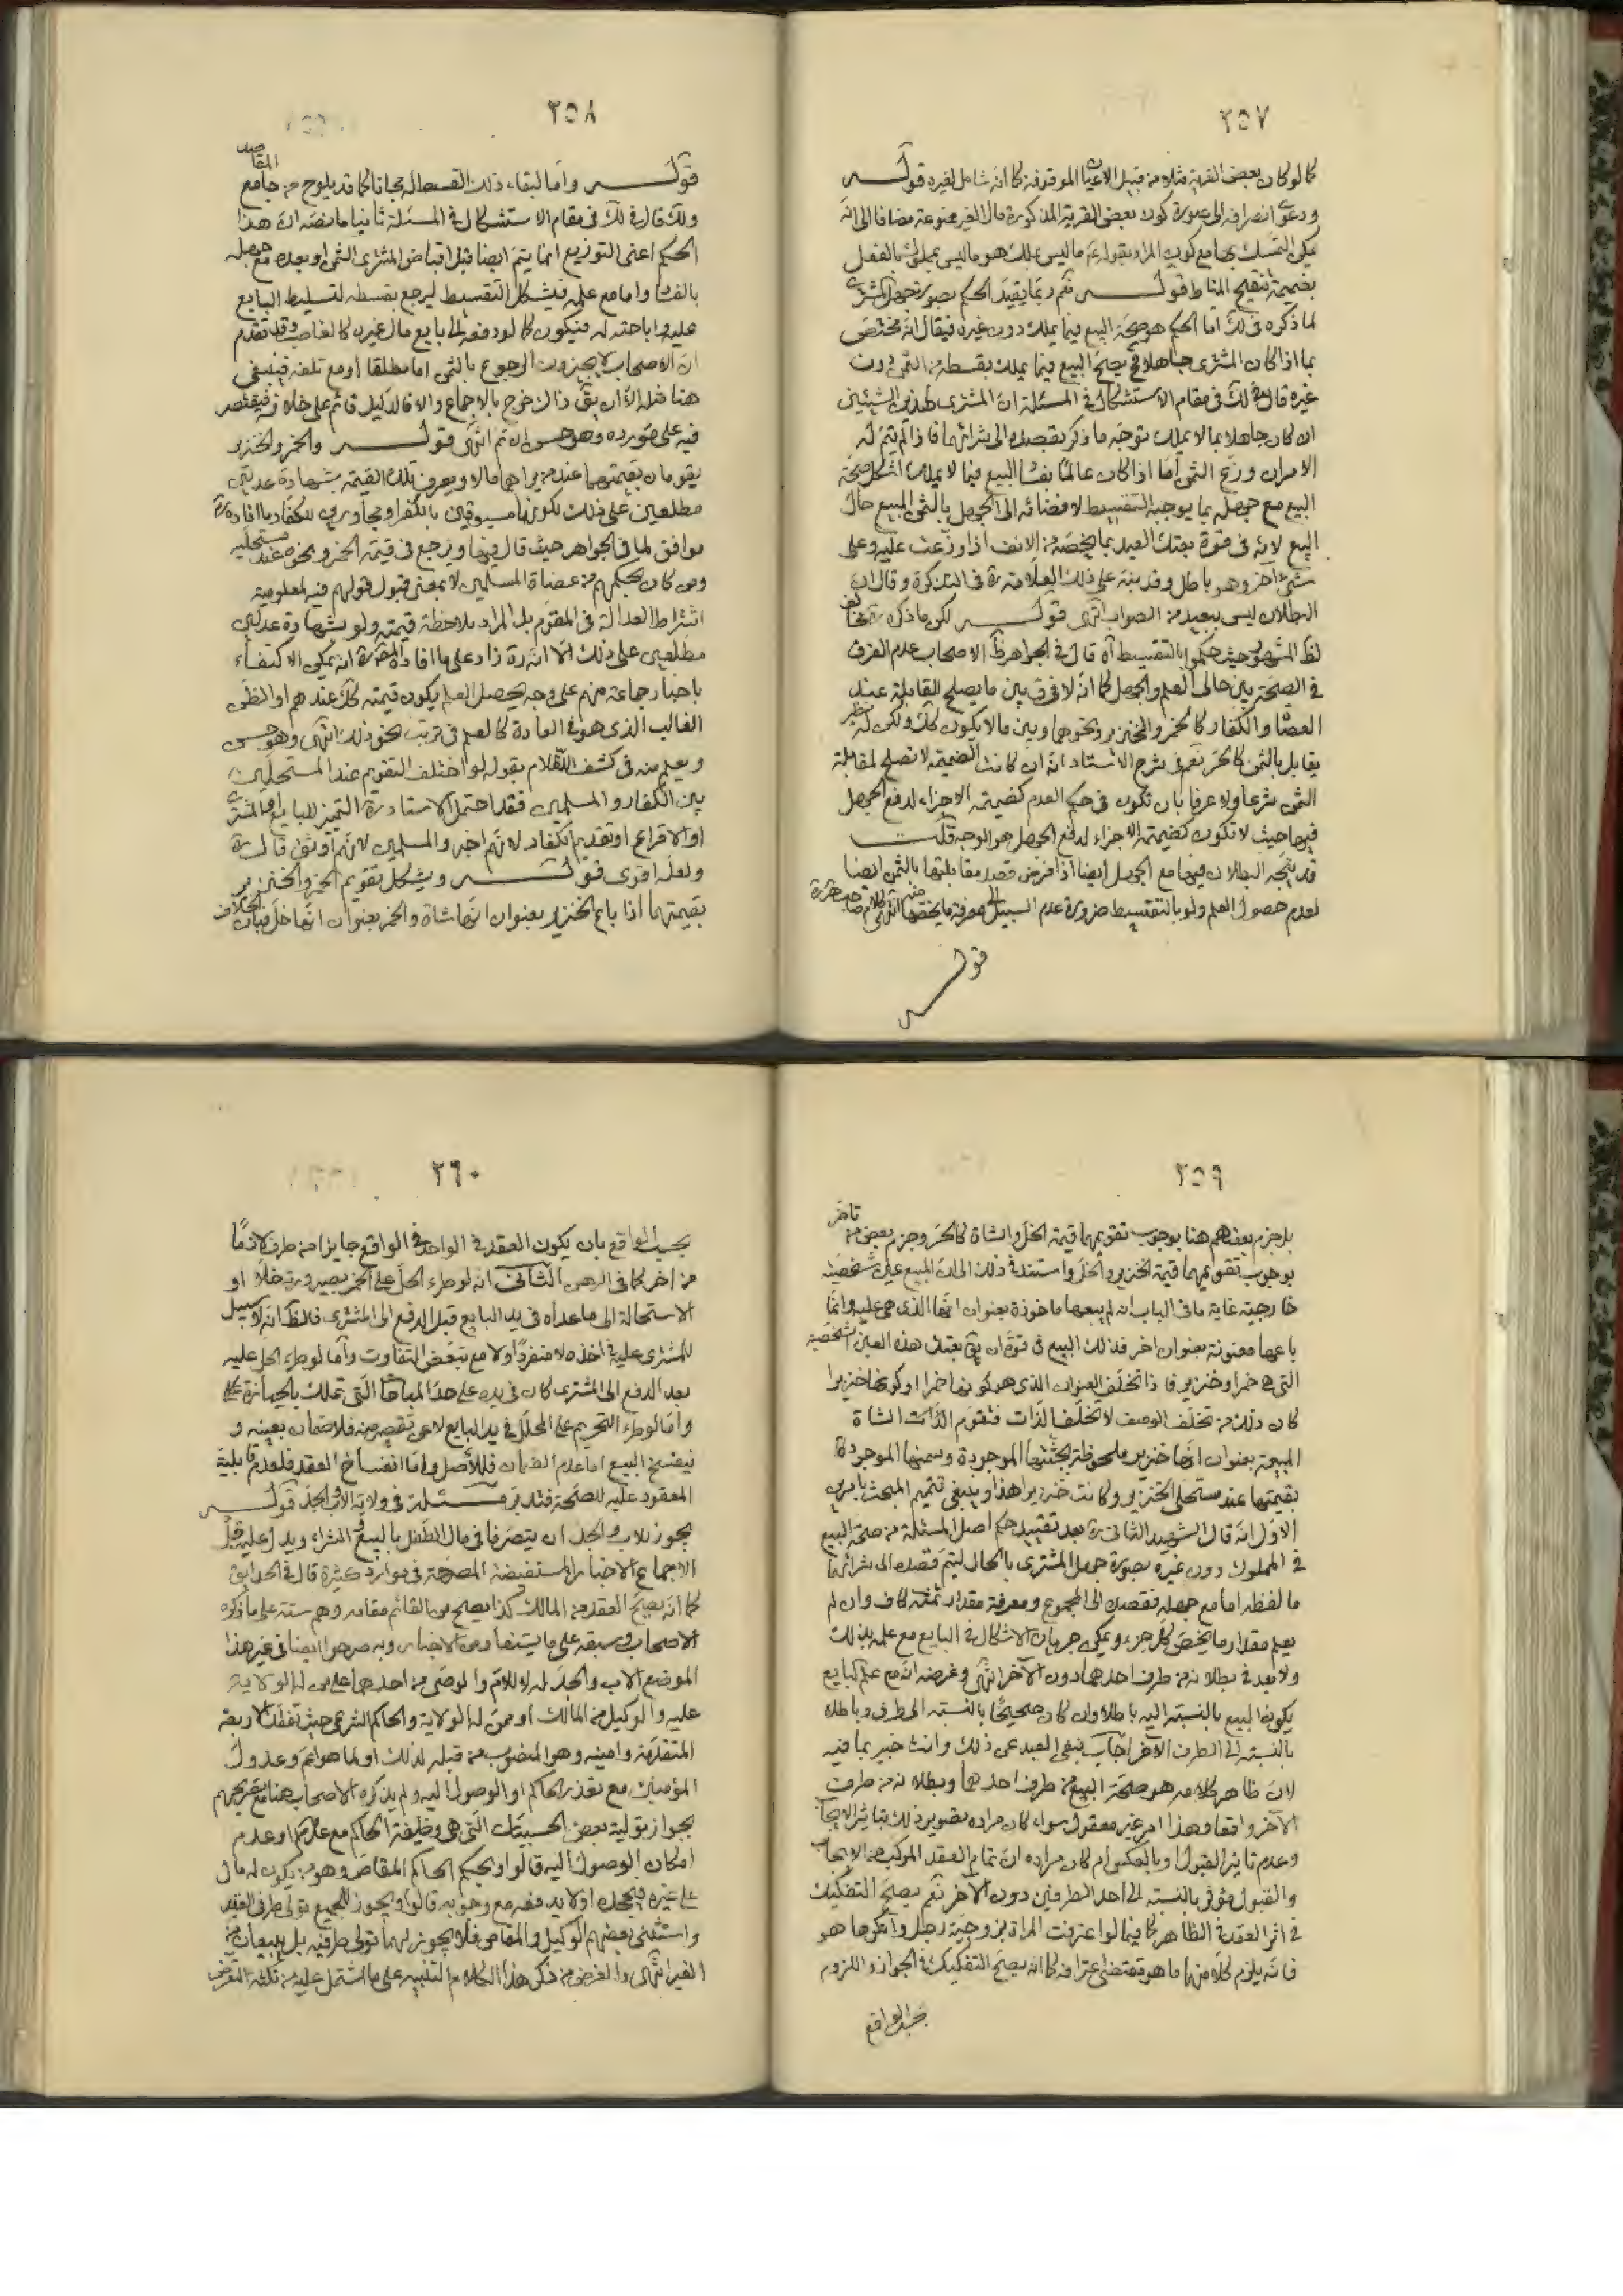 ٢٥٧
كما لو كان بعض القرية مثلا من قبيل الاعيان الموقوفة كما انه شامل لغيره قوله
ودعوى انصرافه الى صورة كون بعض القرية المذكورة مال الغير ممنوعة مضافا الى انه
يمكن التمسك بها مع كون المراد بقوله ع ما ليس يملك هو ما ليس يملك بالفعل
بضميمة تنقيح المناط قوله نعم ربما يقيد الحكم بصورة جهل المشترى
لما ذكره فى لك اما الحكم هو صحة البيع فيما يملك دون غيره فيقال انه مختص
بما اذا كان المشترى جاهلا فح يصح البيع فيما يملك بقسطه من الثمن دون
غيره قال فى لك فى مقام الاستشكال فى المسئلة ان المشترى لهذين الشيئين
ان كان جاهلا بما لا يملك توجه ما ذكر بقصده الى شرائهما فاذا لم يتم له
الامران وزع الثمن اما اذا كان عالما بفساد البيع فيما لا يملك اشكل صحة
البيع مع جهله بما يوجبه التقسيط لافضائه الى الجهل بالثمن المبيع حال
البيع لانه فى قوة بعتك العبد بما يخصه من الالف اذا وزعت عليه وعلى
شئ آخر وهو باطل وقد نبه على ذلك العلامة ره فى التذكرة وقال ان
البطلان ليس ببعيد من الصواب انتهى قوله لكن ما ذكره ره مخالف
لظ المشهور حيث حكموا بالتقسيط آه قال فى الجواهر ظ الاصحاب عدم الفرق
فى الصحة بين حالى العلم والجهل كما انه لا فرق بين ما يصلح للمقابلة عند
العصاة والكفار كالخمر والخنزير ونحوهما وبين ما لا يكون كك ولكن له نظير
يقابل بالثمن كالحر نعم فى شرح الاستاد انه ان كانت الضميمة لا تصلح لمقابلة
الثمن شرعا ولا عرفا بان تكون فى حكم العدم كضميمة الاجزاء لدفع الجهل
فيها حيث لا تكون كضميمة الاجزاء لدفع الجهل هو الوجه قلت
قد يتجه البطلان فيها مع الجهل ايضا اذا فرض قصد مقابلتها بالثمن ايضا
لعدم حصول العلم ولو بالتقسيط ضرورة عدم السبيل الى معرفة ما يخصها منه انتهى كلام صاحب هر ره
قوله
٢٥٨
قوله واما لبقاء ذلك القسط له مجانا كما قد يلوح من جامع المقاصد
ولك قال فى لك فى مقام الاستشكال فى المسئلة ثانيا ما نصه ان هذا
الحكم اعنى التوزيع انما يتم ايضا قبل اقباض المشترى الثمن او بعده مع جهله
بالفساد واما مع علمه فيشكل التقسيط ليرجع بقسطه لتسليط البايع
عليه واباحته له فيكون كما لو دفعه الى بايع مال غيره كالغاصب وقد تقدم
ان الاصحاب لا يجيزون الرجوع بالثمن اما مطلقا او مع تلفه فينبغى
هنا مثله الا ان يق ذاك خرج بالاجماع والا فالدليل قائم على خلافه فيقتصر
فيه على مورده وهو حسن ان تم انتهى قوله والخمر والخنزير
يقومان بقيمتهما عند من يراهما مالا ويعرف تلك القيمة بشهادة عدلين
مطلعين على ذلك لكونهما مسبوقين بالكفر او مجاورين للكفار ما افاده ره
موافق لما فى الجواهر حيث قال فيها ويرجع فى قيمة الخمر ونحوه عند مستحليه
ومن كان بحكمهم من عصاة المسلمين لا بمعنى قبول قولهم فيه لمعلومية
اشتراط العدالة فى المقوم بل المراد ملاحظة قيمته ولو بشهادة عدلين
مطلعين على ذلك الا انه ره زاد على ما افاده المص ره انه يمكن الاكتفاء
باخبار جماعة منهم على وجه يحصل العلم بكون قيمته كك عندهم او الظن
الغالب الذى هو فى العادة كالعلم فى ترتب نحو ذلك انتهى وهو حسن
ويعلم منه فى كشف اللثام بقوله لو اختلف التقويم عند المستحلين
بين الكفار والمسلمين فقد احتمل الاستاد ره التميز للبايع او المشترى
او الاقراع او تقديم الكفار لانهم اخبر والمسلمين لانهم اوثق قال ره
ولعله اقوى قوله ويشكل تقويم الخمر والخنزير
بقيمتهما اذا باع الخنزير بعنوان انها شاة والخمر بعنوان انها خل فبان الخلاف
٢٥٩
بل جزم بعضهم هنا بوجوب تقويمهما قيمة الخل والشاة كالحر وجزم بعض من تاخر
بوجوب تقويمهما قيمة الخنزير والخل واستند فى ذلك الى ان المبيع عين شخصية
خارجية غاية ما فى الباب انه لم يبعها ماخوذة بعنوان انها الذى هى عليه وانما
باعها معنونة بعنوان اخر فذلك البيع فى قوة ان يق بعتك هذه العين الشخصية
التى هى خمر او خنزير فاذا تخلف العنوان الذى هو كونها خمرا او كونها خنزيرا
كان ذلك من تخلف الوصف لا تخلف الذات فتقوم الذات الشاة
المبيعة بعنوان انها خنزير ملحوظة بجثتها الموجودة وسمنها الموجودة
بقيمتها عند مستحلى الخنزير لو كانت خنزيرا هذا وينبغى تتميم المبحث بامرين
الاول انه قال الشهيد الثانى ره بعد تقييد حكم اصل المسئلة من صحة البيع
فى المملوك دون غيره بصورة جهل المشترى بالحال ليتم قصده الى شرائهما
ما لفظه اما مع جهله فقصده الى المجموع ومعرفة مقدار ثمنه كاف وان لم
يعلم مقدار ما يخص كل جزء ويمكن جريان الاشكال فى البايع مع علمه بذلك
ولا بعد فى بطلانه من طرف احدهما دون الآخر انتهى وغرضه انه مع علم البايع
يكون البيع بالنسبة اليه باطلا وان كان صحيحا بالنسبة الى طرف وباطلا
بالنسبة الى الطرف الآخر اجاب بنفى البعد عن ذلك وانت خبير بما فيه
لان ظاهر كلامه هو صحة البيع من طرف احدهما وبطلانه من طرف
الآخر واقعا وهذا امر غير معقول سواء كان مراده تصوير ذلك بتاثير الايجاب
وعدم تاثير القبول او بالعكس ام كان مراده ان تمام العقد المركب من الايجاب
والقبول مؤثر بالنسبة الى احد الطرفين دون الآخر نعم يصح التفكيك
فى اثر العقد فى الظاهر كما فيما لو اعترفت المراة بزوجية رجل وانكرها هو
فانه يلزم كلا منهما ما هو مقتضى اعترافه كما انه يصح التفكيك فى الجواز واللزوم
بحسب الواقع
٢٦٠
بحسب الواقع بان يكون العقد فى الواحد فى الواقع جايزا من طرف لازما
من اخر كما فى الرهن الثانى انه لو طرء الحل على الخمر بصيرورته خلا او
الاستحالة الى ما عداه فى يد البايع قبل الدفع الى المشترى فالظ انه لا سبيل
للمشترى عليه فى اخذه لا منفردا ولا مع تبعض التفاوت واما لو طرء الحل عليه
بعد الدفع الى المشترى كان فى يده على حد المباحات التى تملك بالحيازة
واما لو طرء التحريم على المحلل فى يد البايع لا عن تقصير منه فلا ضمان بعينه و
فينفسخ البيع اما عدم الضمان فللأصل واما انفساخ العقد فلعدم قابلية
المعقود عليه للصحة فتدبر مسئلة فى ولاية الاب والجد قوله
يجوز للاب والجد ان يتصرفا فى مال الطفل بالبيع والشراء ويدل عليه قبل
الاجماع الاخبار المستفيضة المصرحة فى موارد كثيرة قال فى الحدائق
كما انه يصح العقد من المالك كذا يصح من القائم مقامه وهم ستة على ما ذكره
الاصحاب وسبعة على ما يستفاد من الاخبار وبه صرحوا ايضا فى غير هذا
الموضع الاب والجد له لا للام والوصى من احدهما على من له الولاية
عليه والوكيل من المالك او ممن له الولاية والحاكم الشرعى حيث تفقد الاربعة
المتقدمة وامينه وهو المنصوب من قبله لذلك او لما هو اعم وعدول
المؤمنين مع تعذر الحاكم او الوصول اليه ولم يذكره الاصحاب هنا مع تصريحهم
بجواز تولية بعض الحسبيات التى هى وظيفة الحاكم مع عدم الحاكم او عدم
امكان الوصول اليه قالوا وبحكم الحاكم المقاص وهو من يكون له مال
على غيره فيجحده او لا يدفعه مع وجوبه قالوا ويجوز للجميع تولى طرفى العقد
واستثنى بعضهم الوكيل والمقاص فلا يجوز لهما تولى طرفيه بل يبيعان من
الغير انتهى والغرض من ذكر هذا الكلام التنبيه على ما اشتمل عليه من